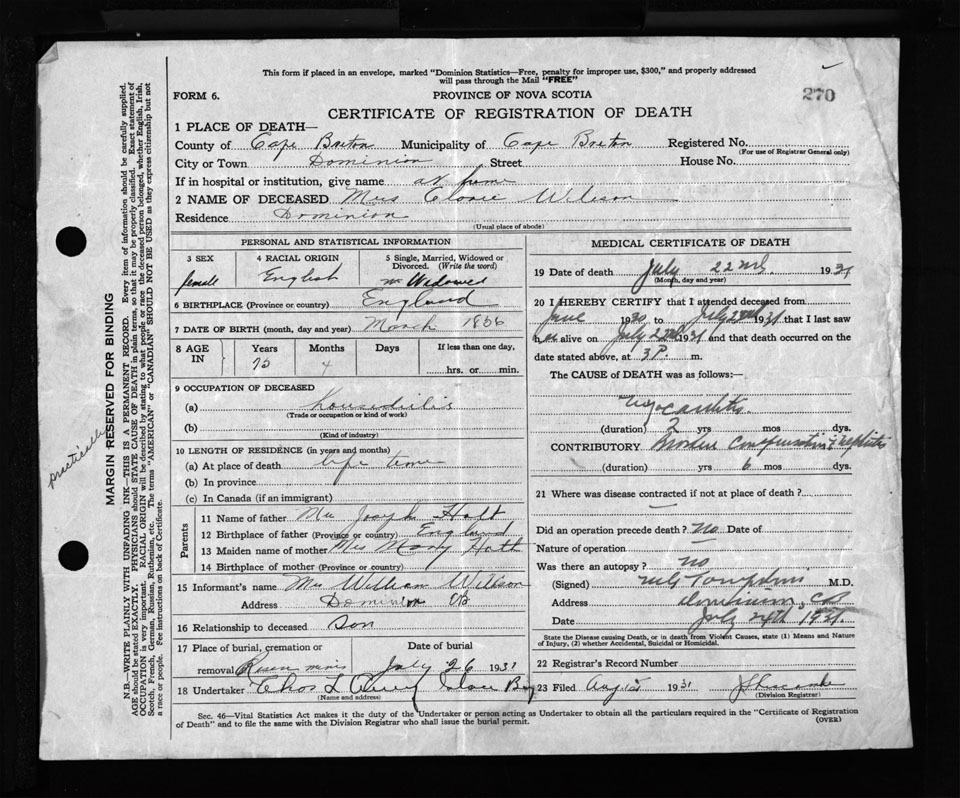 This form if placed in an envelope, marked "Dominion Statistics—Free, penalty for improper use, $300," and properly addressed
will pass through the Mail "FREE"
FORM 6.
PROVINCE OF NOVA SCOTIA
270
CERTIFICATE OF REGISTRATION OF DEATH
1 PLACE OF DEATH—
County of Cape Breton Municipality of Cape Breton Registered No.
(For use of Registrar General only)
City or Town Dominion Street House No.
If in hospital or institution, give name at home
2 NAME OF DECEASED Mrs Wilson
Residence Dominion
(Usual place of abode)
PERSONAL AND STATISTICAL INFORMATION
3 SEX 4 RACIAL ORIGIN 5 Single, Married, Widowed or
Divorced. (Write the word)
female English Widowed
6 BIRTHPLACE (Province or country) England
7 DATE OF BIRTH (month, day and year) March 1856
8 AGE IN Years Months Days If less than one day,
75 4 hrs. or min.
9 OCCUPATION OF DECEASED
(a)
(Trade or occupation or kind of work)
(b)
(Kind of industry)
10 LENGTH OF RESIDENCE (in years and months)
(a) At place of death life time
(b) In province
(c) In Canada (if an immigrant)
Parents
11 Name of father Mr Joseph Holt
12 Birthplace of father (Province or country) England
13 Maiden name of mother Mrs Mary
14 Birthplace of mother (Province or country)
15 Informant's name William Willson
Address Dominion CB
16 Relationship to deceased son
17 Place of burial, cremation or Date of burial
removal July 26 1931
18 Undertaker Thos
(Name and address)
MEDICAL CERTIFICATE OF DEATH
19 Date of death July 22nd 1931
(Month, day and year)
20 I HEREBY CERTIFY that I attended deceased from
June 1930 to July 22nd 1931 that I last saw
h er alive on July 22nd 1931 and that death occurred on the
date stated above, at 3 P. m.
The CAUSE of DEATH was as follows:—
Myocarditis
(duration) 2 yrs mos dys.
CONTRIBUTORY
(duration) yrs 6 mos dys.
21 Where was disease contracted if not at place of death?
Did an operation precede death? no Date of
Nature of operation
Was there an autopsy? no
(Signed) M.D.
Address Dominion, CB
Date July 24th 1931
State the Disease causing Death, or in death from Violent Causes, state (1) Means and Nature
of Injury, (2) whether Accidental, Suicidal or Homicidal.
22 Registrar's Record Number
23 Filed 1931
(Division Registrar)
Sec. 46—Vital Statistics Act makes it the duty of the Undertaker or person acting as Undertaker to obtain all the particulars required in the "Certificate of Registration
of Death" and to file the same with the Division Registrar who shall issue the burial permit.
(OVER)
practically
MARGIN RESERVED FOR BINDING
N.B.—WRITE PLAINLY WITH UNFADING INK—THIS IS A PERMANENT RECORD. Every item of information should be carefully supplied.
AGE should be stated EXACTLY. PHYSICIANS should STATE CAUSE OF DEATH in plain terms, so that it may be properly classified. Exact statement of
OCCUPATION is very important. RACIAL ORIGIN will be described by stating to what people or race the deceased person belonged, whether English, Irish,
Scotch, French, German, Russian, Ruthenian, etc. The terms "AMERICAN" or "CANADIAN" SHOULD NOT BE USED as they express citizenship but not
a race or people. See instructions on back of Certificate.